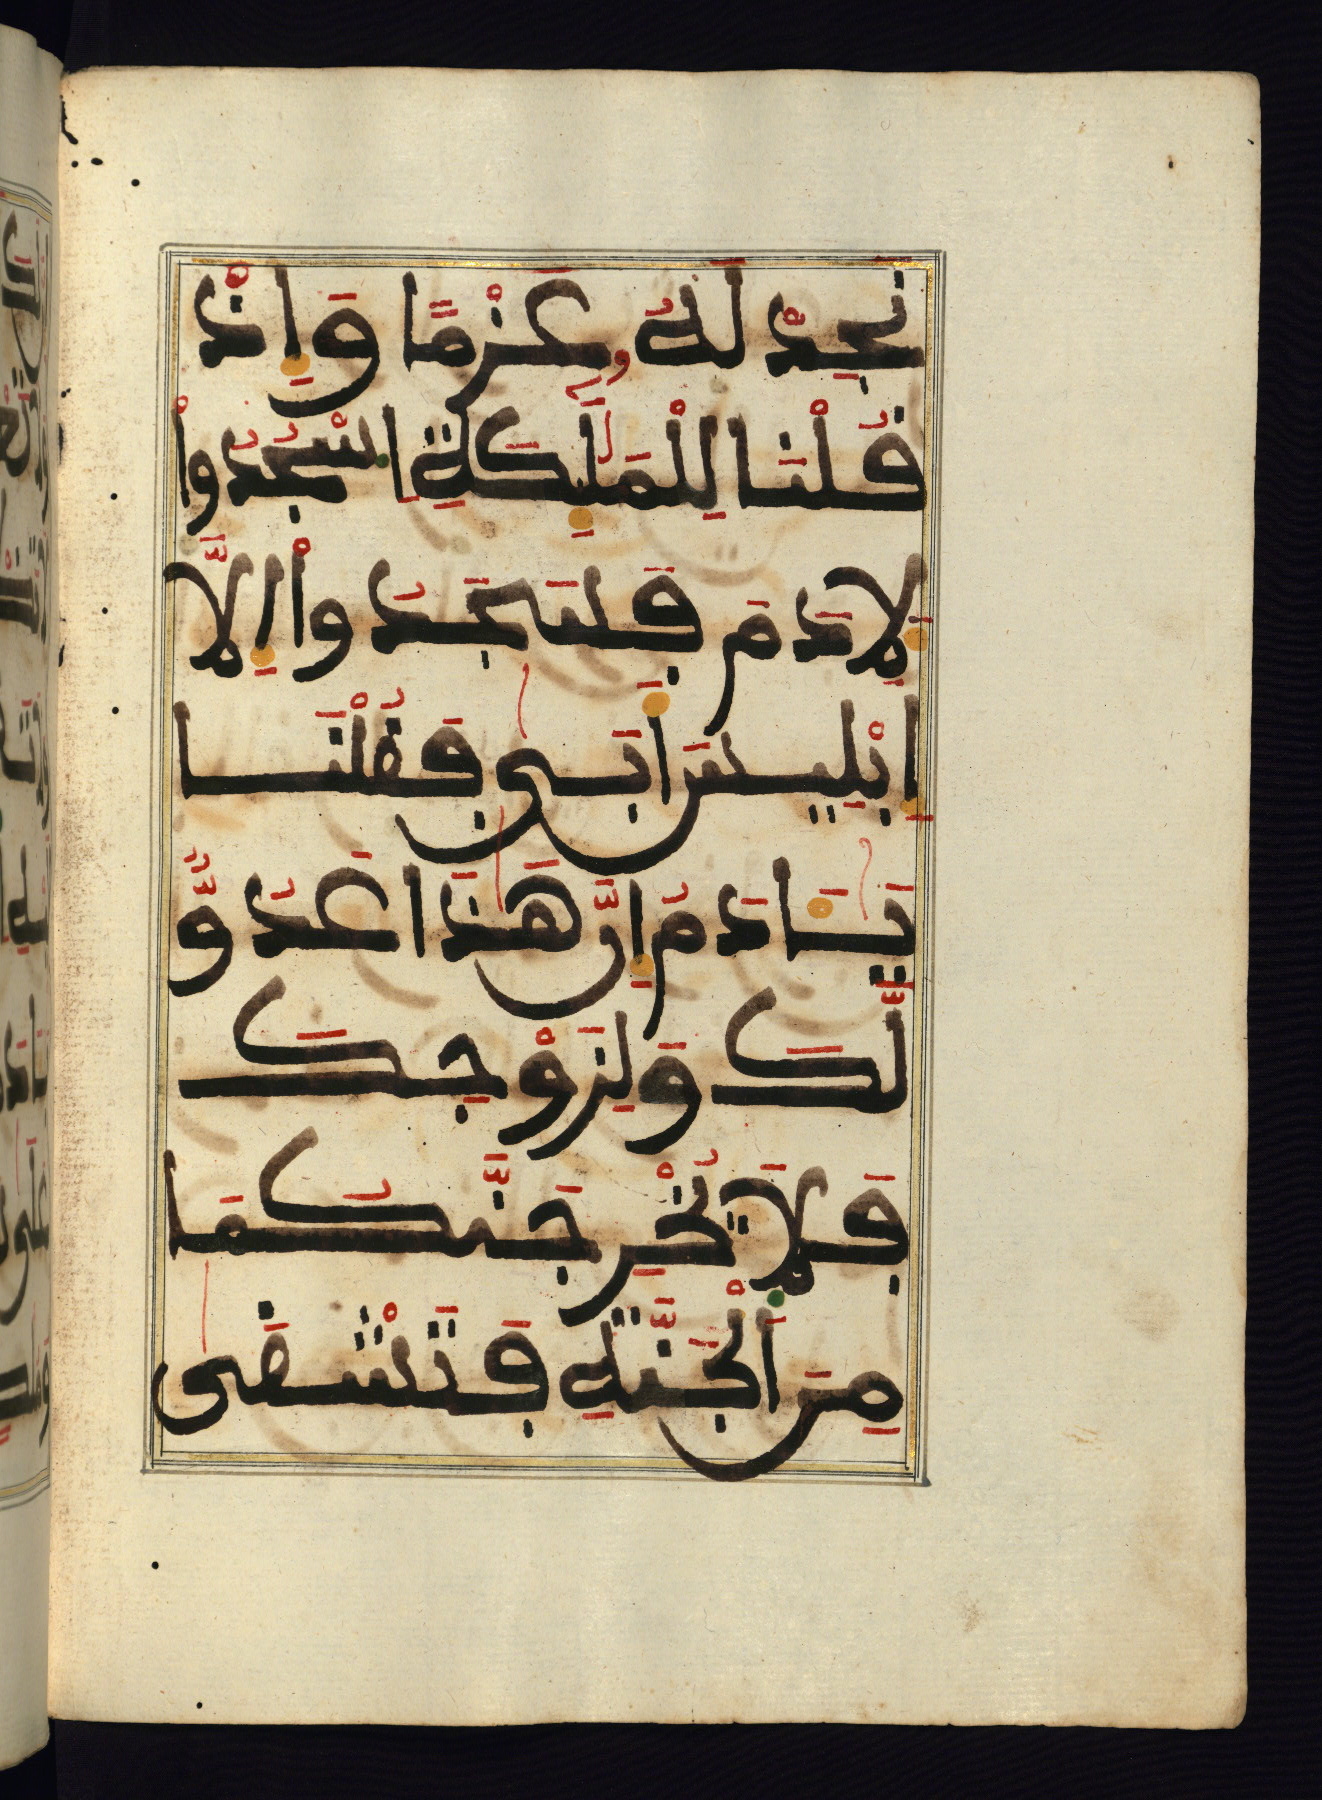 نَجِدْ لَهُۥ عَزْمًا وَإِذْ
قُلْنَا لِلْمَلَٰٓئِكَةِ اِ۟سْجُدُواْ
لِأَدَمَ فَسَجَدُوٓاْ إِلَّآ
إِبْلِيسَ أَبَىٰ فَقُلْنَا
يَٰٓـَٔادَمُ إِنَّ هَٰذَا عَدُوٌّ
لَّكَ وَلِزَوْجِكَ
فَلَا يُخْرِجَنَّكُمَا
مِنَ اَ۬لْجَنَّةِ فَتَشْقَىٰ